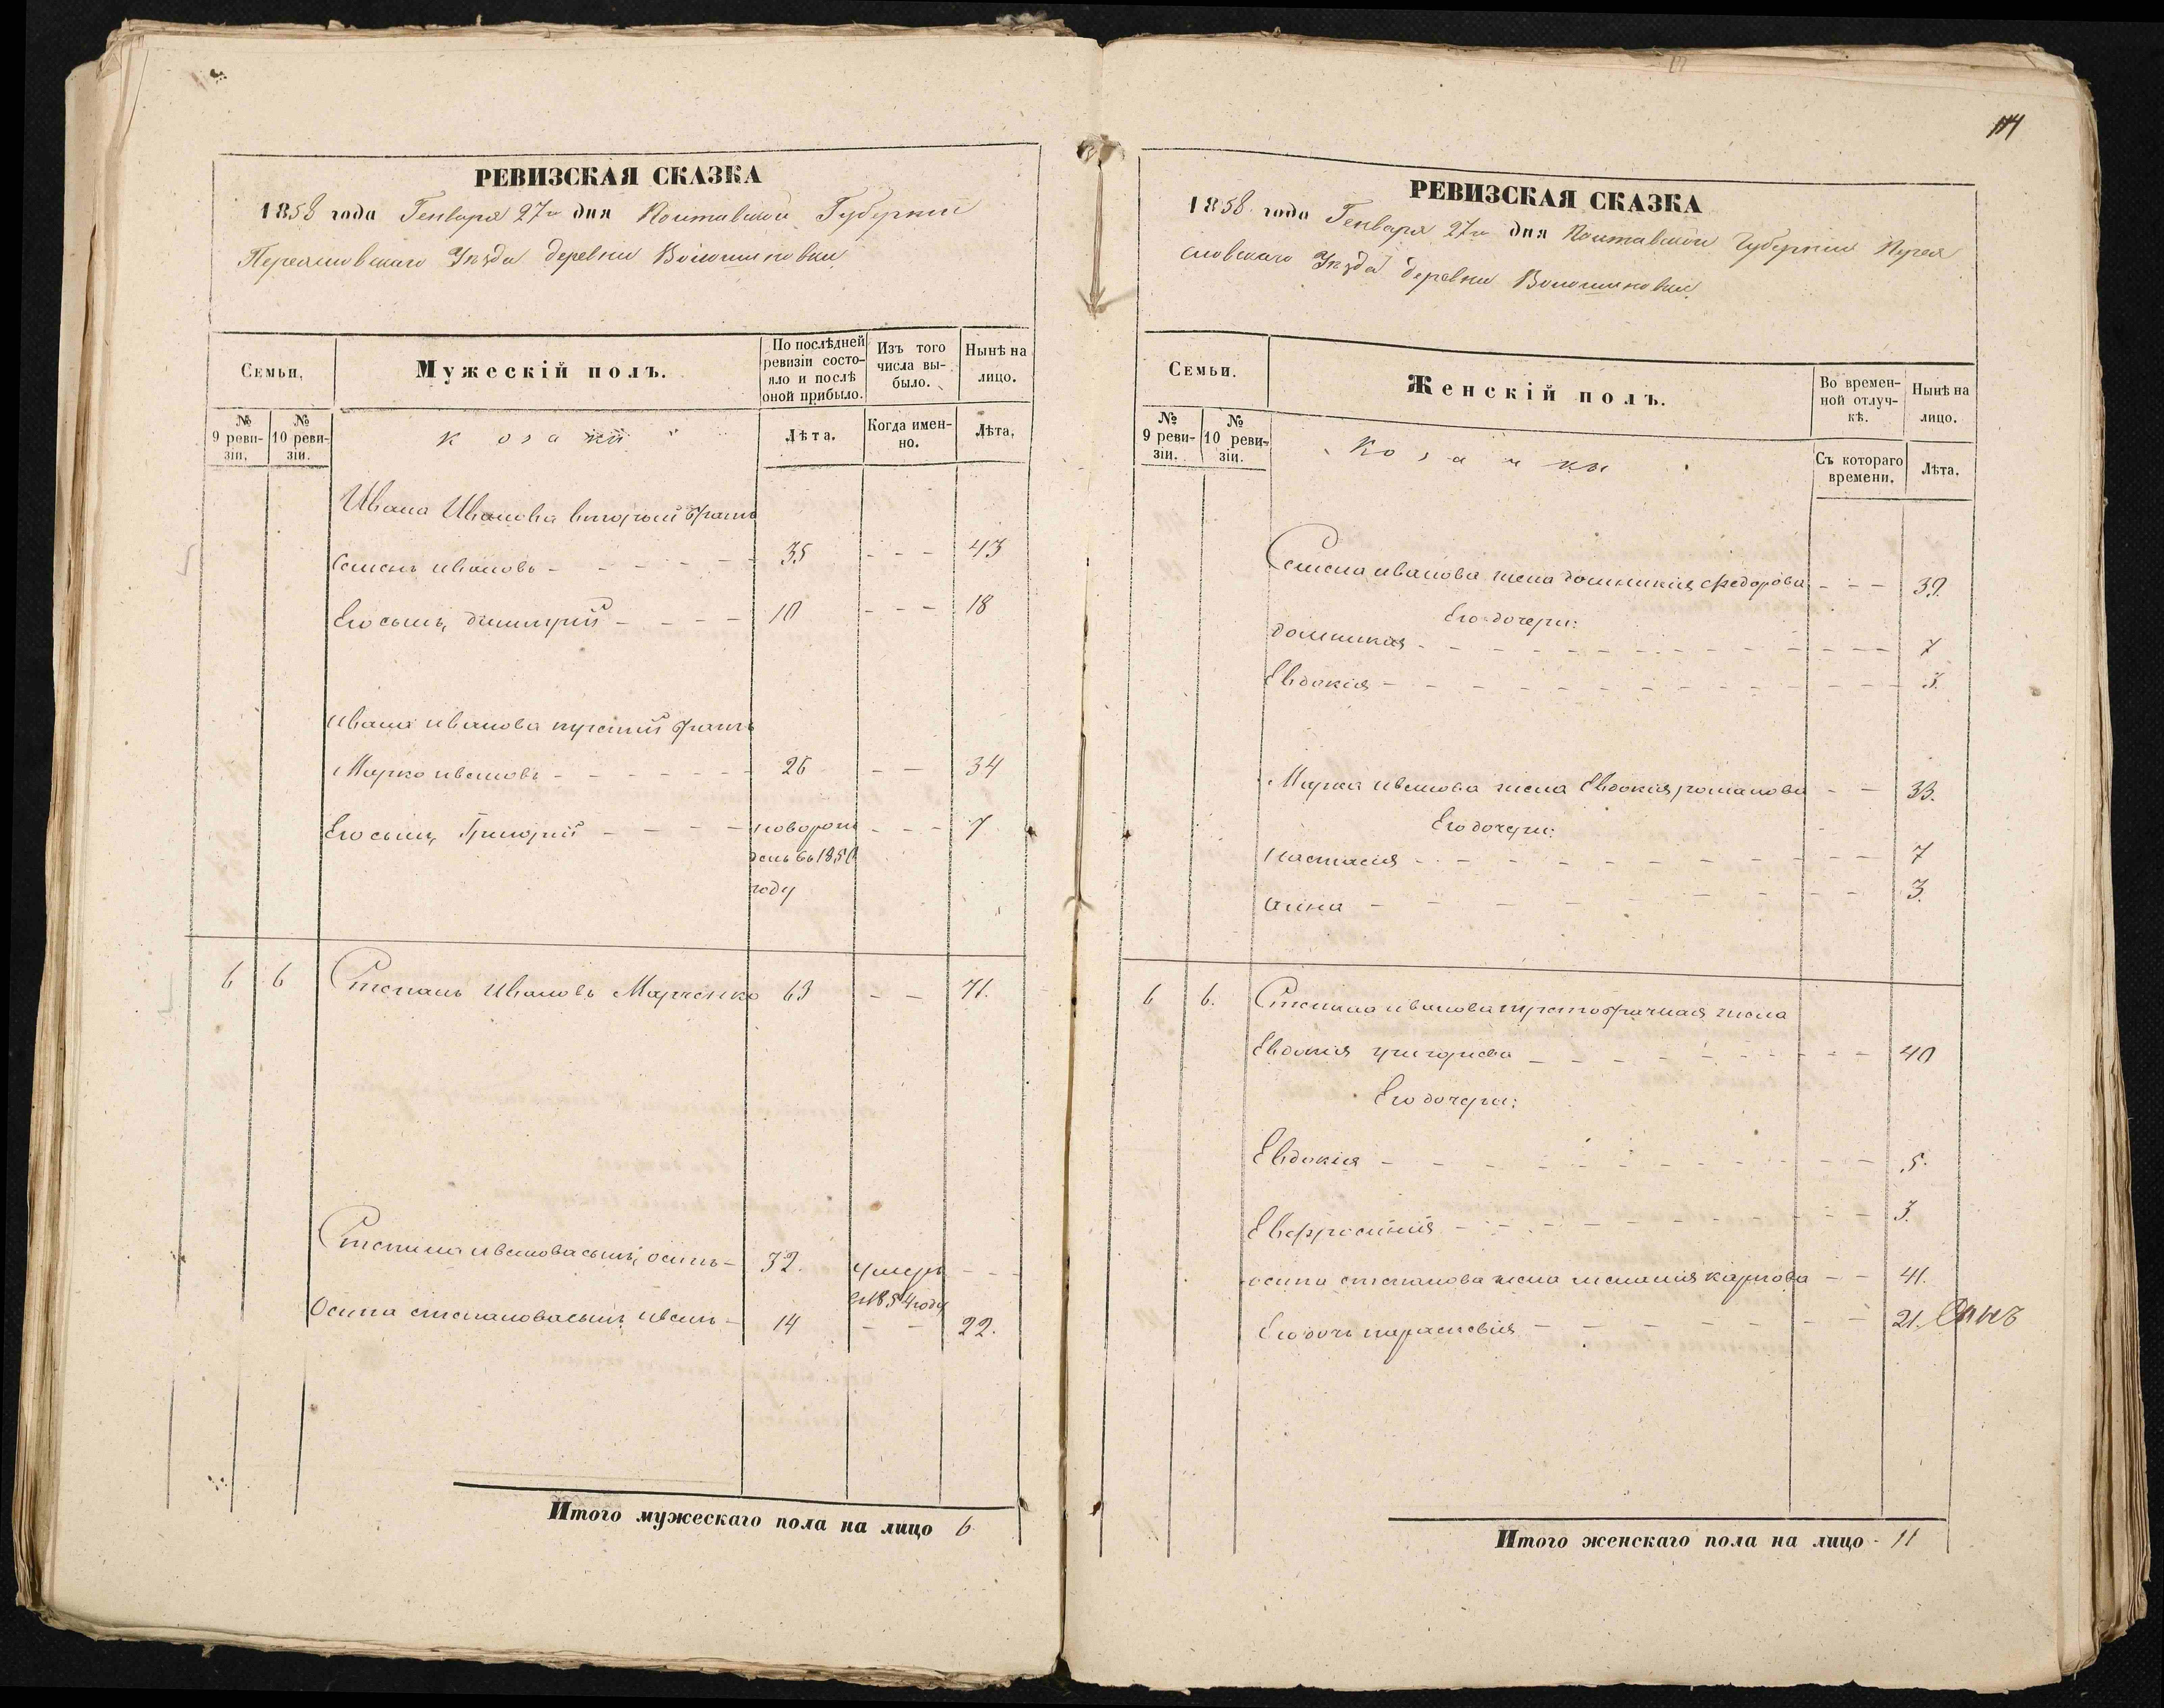 РЕВИЗСКАЯ СКАЗКА
1858 года Генваря 27го дня Полтавской Губернии
Переяславскаго Уѣзда деревни Волошиновки
Семьи,
Мужескій полъ.
По послѣдней ревизіи состояло и послѣ оной прибыло.
Изъ того числа выбыло.
Нынѣ на лицо.
№ 9 ревизіи,
№ 10 ревизіи.
козаки
Лѣта.
Когда именно.
Лѣта,
Ивана Иванова вторый братъ
Семенъ ивановъ - - - - - - 35 - - - 43
Его сынъ, димитрій - - - - 10 - - - 18
ивана иванова третій братъ
Марко ивановъ - - - - - - 26 - - 34
Его сынъ, Григорій - - - - новорож - - - 7
денъ въ 1850
году
6 6 Степанъ Ивановъ Марченко 63 - - 71.
Степана иванова сынъ, осипъ - 32. умеръ - - -
въ 1854 году
Осипа степанова сынъ иванъ - 14 - - 22.
Итого мужескаго пола на лицо 6
114
РЕВИЗСКАЯ СКАЗКА
1858 года Генваря 27го дня Полтавской Губернии Перея
славскаго Уѣзда деревни Волошиновки
Семьи.
Женскій полъ.
Во временной отлучкѣ.
Нынѣ на лицо.
№ 9 ревизіи.
№ 10 ревизіи.
Козачки
Съ котораго времени.
Лѣта.
Семена иванова жена домникия федорова - - - 39.
Его дочери:
домникия - - - - - - 7
Евдокия - - - - - - 3.
Марка иванова жена Евдокия романова - - 33.
Его дочери:
настасия - - - - - - 7
анна - - - - - - 3.
6 6. Степана иванова третобрачная жена
Евдокия григориева - - - - - - 40
Его дочери:
Евдокия - - - - - - 5.
Евфросиния - - - - - - 3.
осипа степанова жена мелания карпова - - 41.
Его дочь параскевия - - - - - - 21.
Итого женскаго пола на лицо - 11